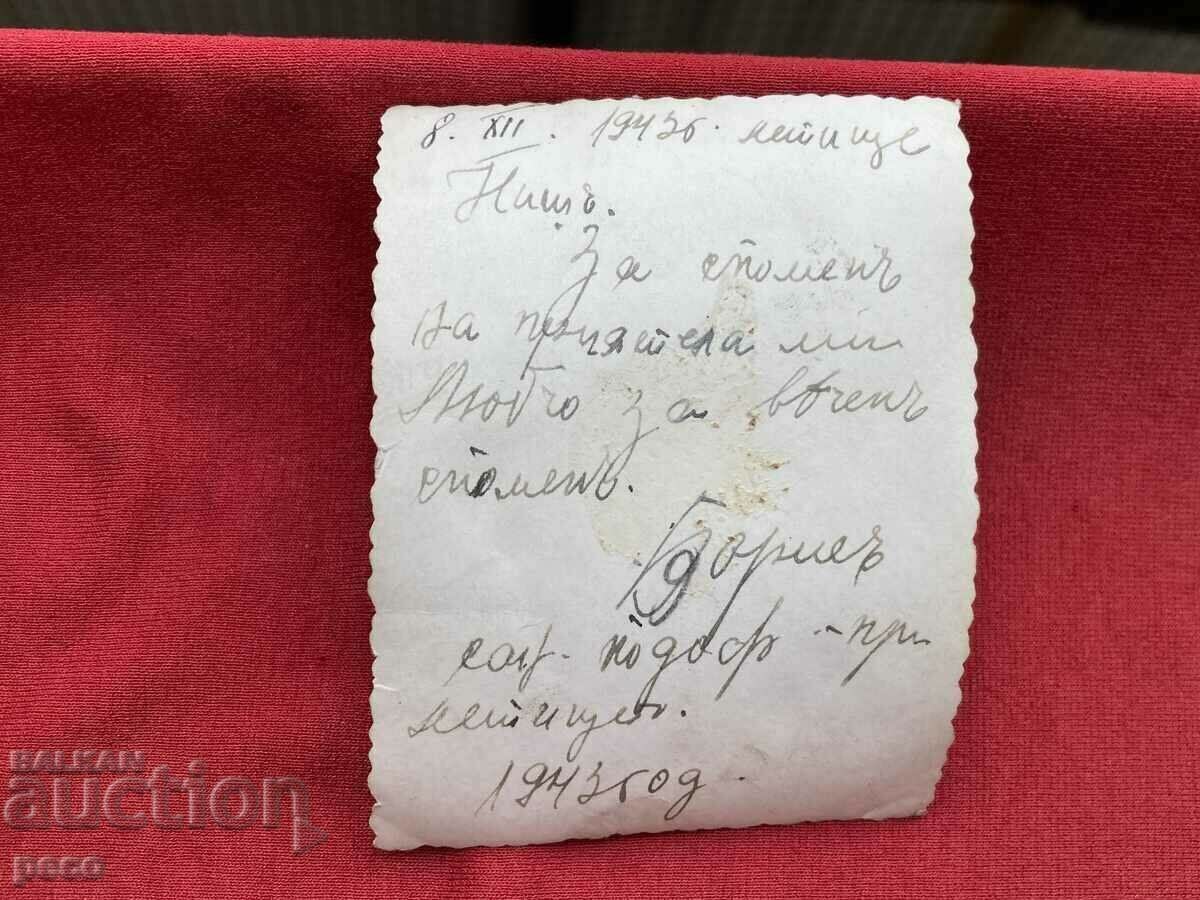 8. XII. 1943г. летище
Нишъ.
За споменъ
на приятела ми
Любчо за вѣченъ
споменъ.
Борисъ
сан. подоф - при
летището.
1943 год.
BALKAN
auction
peco